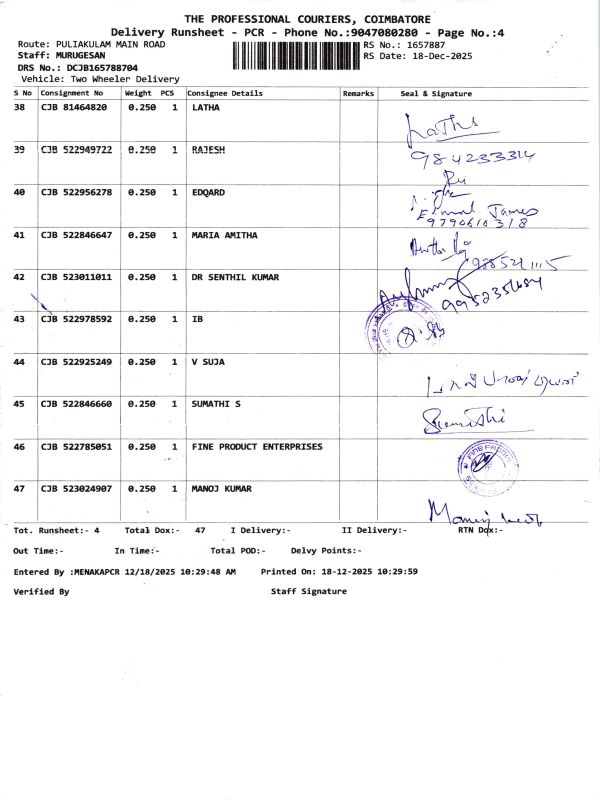 THE PROFESSIONAL COURIERS, COIMBATORE
Delivery Runsheet - PCR - Phone No.:9047080280 - Page No.:4
Route: PULIAKULAM MAIN ROAD
RS No.: 1657887
Staff: MURUGESAN
RS Date: 18-Dec-2025
DRS No.: DCJB165788704
Vehicle: Two Wheeler Delivery
S No Consignment No Weight PCS Consignee Details Remarks Seal & Signature
38 CJB 81464820 0.250 1 LATHA
Latha
984233314
39 CJB 522949722 0.250 1 RAJESH
40 CJB 522956278 0.250 1 EDQARD
James
9790610318
41 CJB 522846647 0.250 1 MARIA AMITHA
42 CJB 523011011 0.250 1 DR SENTHIL KUMAR
43 CJB 522978592 0.250 1 IB
44 CJB 522925249 0.250 1 V SUJA
45 CJB 522846660 0.250 1 SUMATHI S
Sumathi
46 CJB 522785051 0.250 1 FINE PRODUCT ENTERPRISES
47 CJB 523024907 0.250 1 MANOJ KUMAR
Tot. Runsheet:- 4 Total Dox:- 47 I Delivery:- II Delivery:- RTN Dox:-
Out Time:- In Time:- Total POD:- Delvy Points:-
Entered By :MENAKAPCR 12/18/2025 10:29:48 AM Printed On: 18-12-2025 10:29:59
Verified By Staff Signature